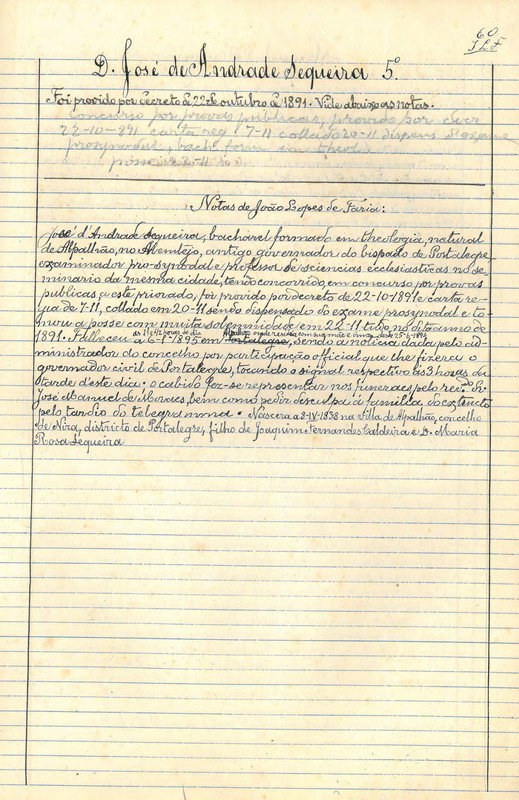 60
D. José de Andrade Sequeira 5º.
Foi provido por decreto de 22 de outubro de 1891. Vide abaixo as notas.
Concurso por provas publicas, provido por decr
22-10-891 carta reg 7-11 collado 20-11 dispens. d'exame
prosynodal, bach form em theol
posse 22-11
Notas de João Lopes de Faria:
José d'Andrade Sequeira, bacharel formado em theologia, natural
de Alpalhão, no Alemtejo, antigo governador do bispado de Portalegre,
examinador pro-synodal e professor de sciencias ecclesiasticas no se-
minario da mesma cidade, tendo concorrido, em concurso por provas
publicas, a este priorado, foi provido por decreto de 22-10-1891 e carta re-
gia de 7-11, collado em 20-11 sendo dispensado do exame prosynodal e to-
mou a posse com muita solemnidade em 22-11 tudo no dito anno de
1891. Falleceu a 6-1-1895 em Portalegre, sendo a noticia dada pelo ad-
ás 11 1/2 horas do dia Alpalhão onde residia com sua mãe e irmã desde 25-5-1894
ministrador do concelho por participação official que lhe fizera o
governador civil de Portalegre, tocando o signal respectivo ás 3 horas da
tarde d'este dia. o cabido fez-se representar nos funeraes pelo rev.º dr.
José Manuel de Moraes, bem como pedir desculpa á familia do extincto
pelo tardio do telegramma. Nascera a 3-IV-1838 na villa de Alpalhão, concelho
de Niza, districto de Portalegre, filho de Joaquim Fernandes Caldeira e D. Maria
Rosa Sequeira